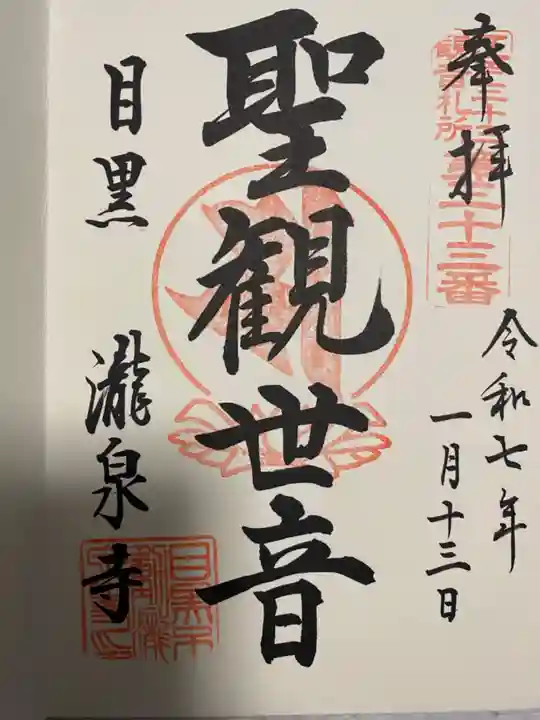 奉拝
観音札所
第三十三番
令和七年
一月十三日
聖観世音
目黒 瀧泉寺